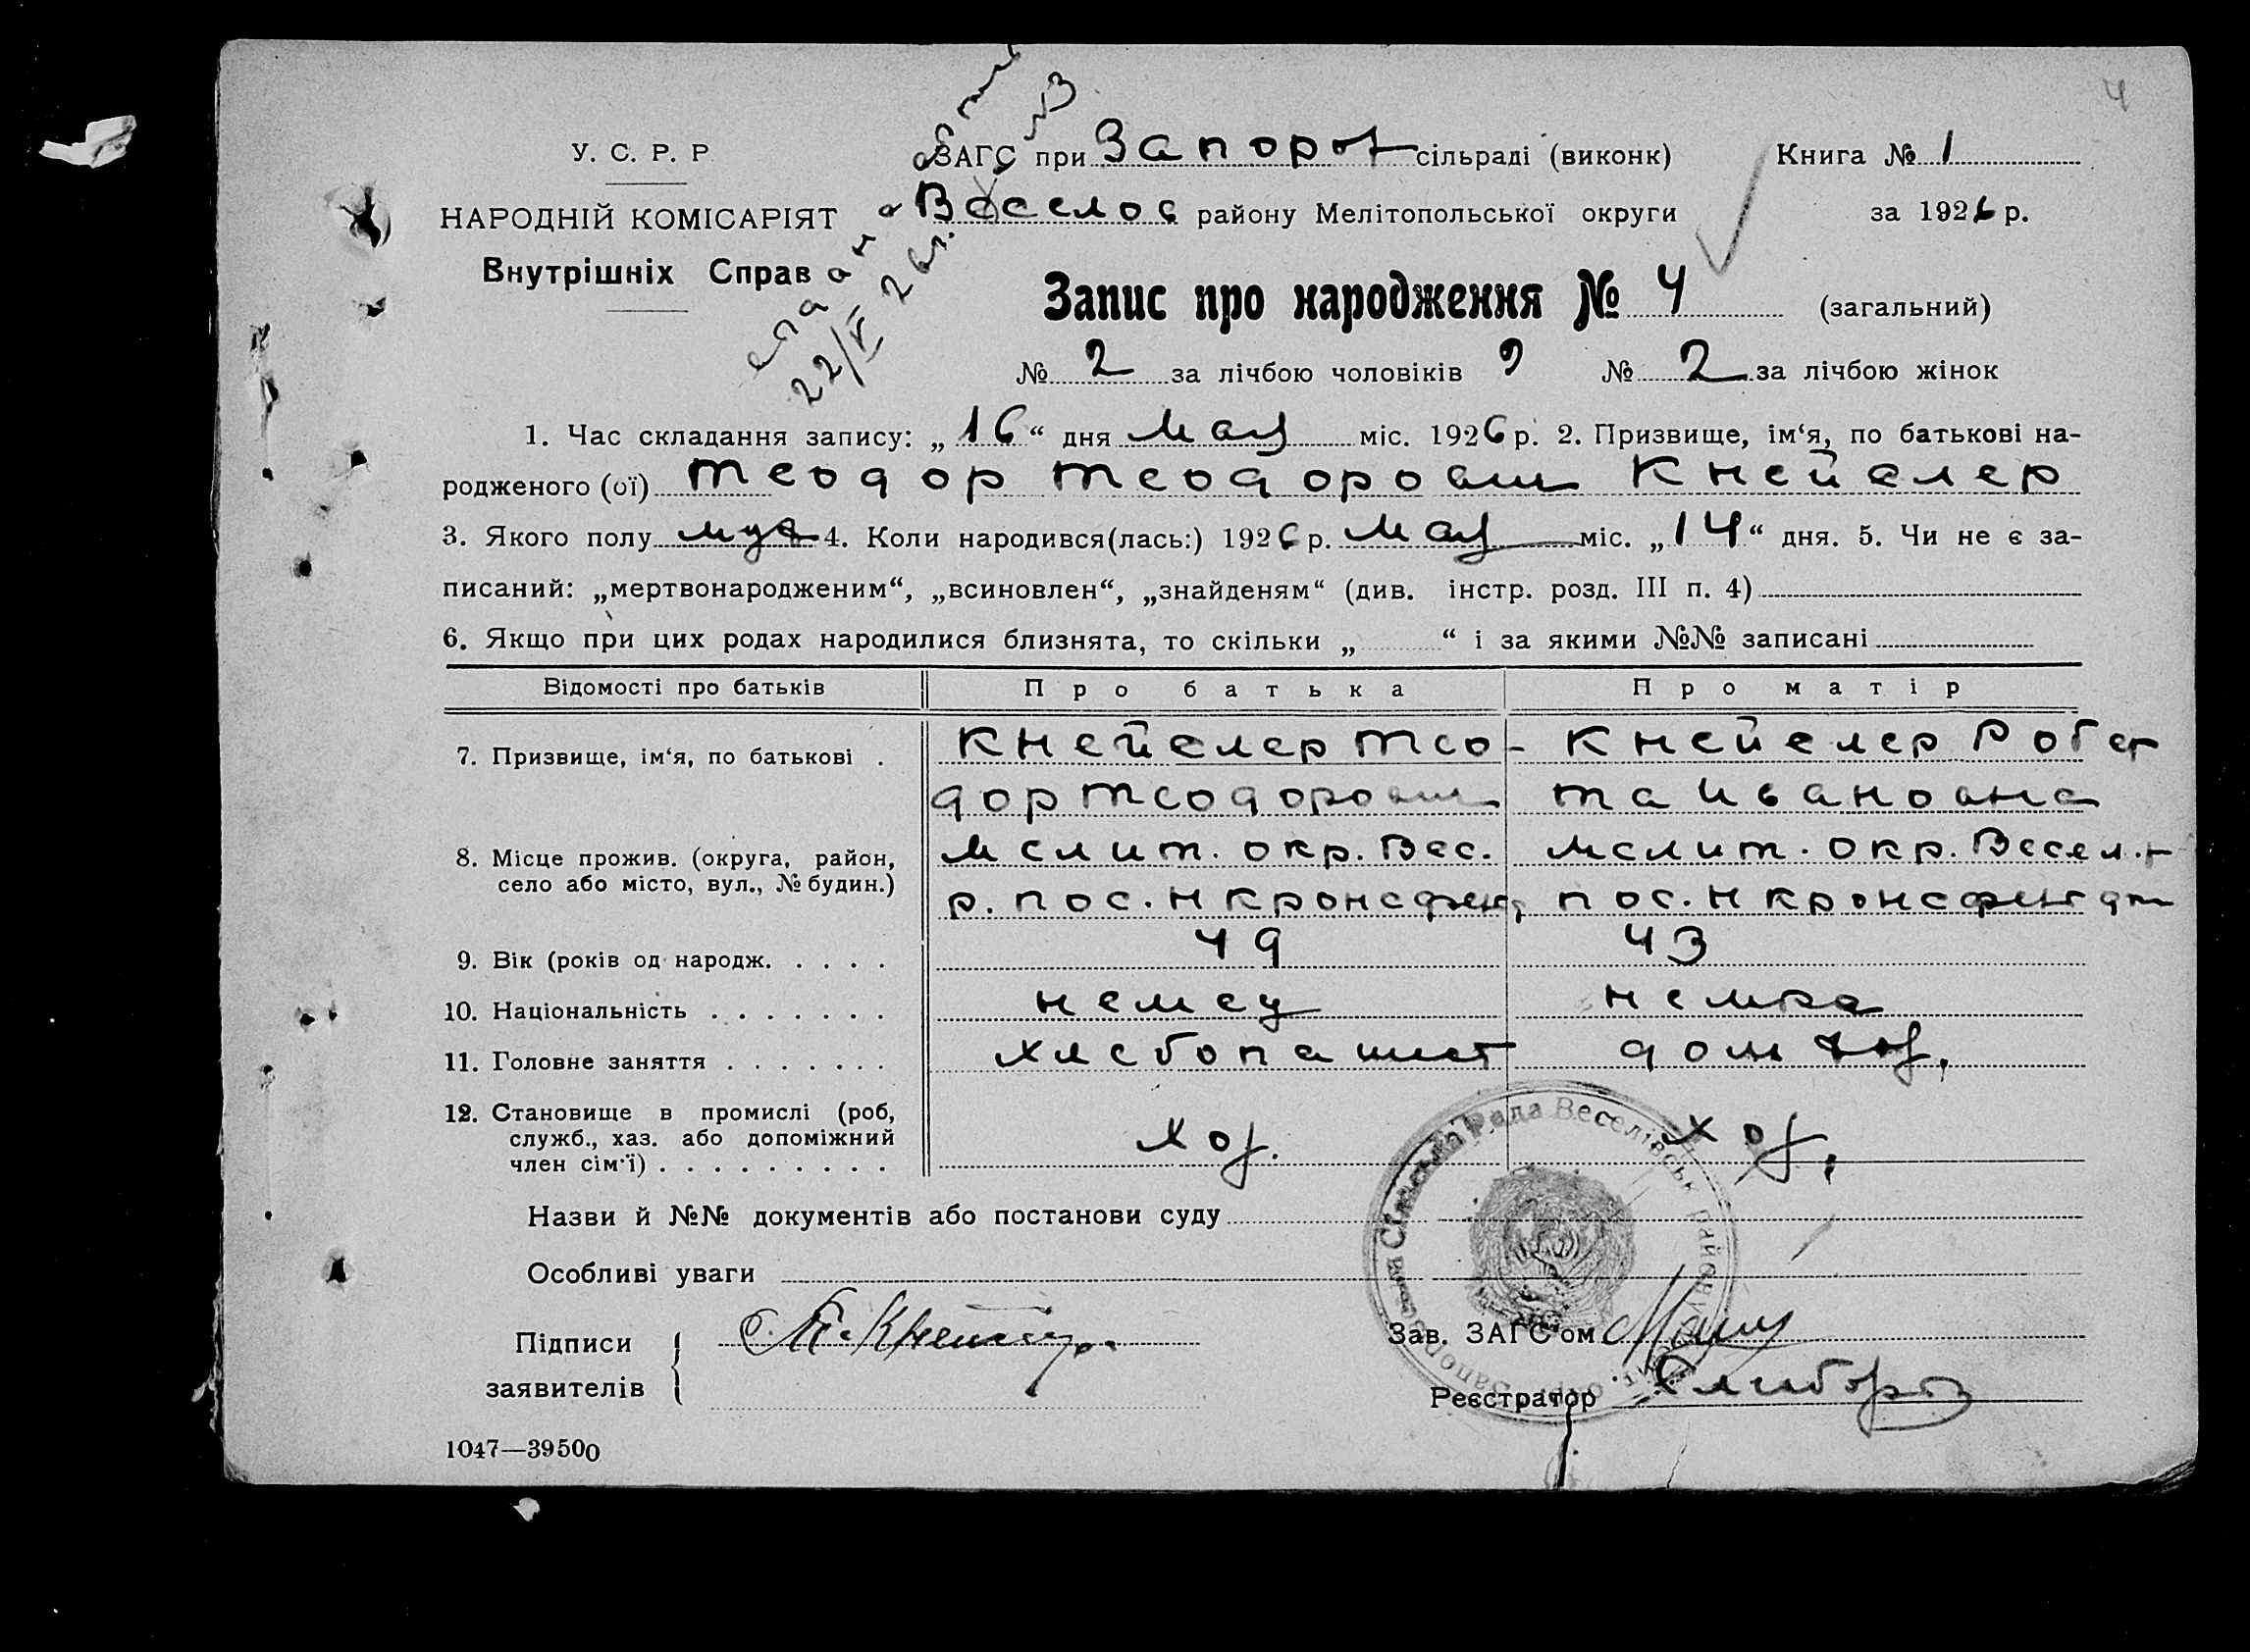 4
У. С. Р. Р.
ЗАГС при Запорож сільраді (виконк) Книга № 1
НАРОДНІЙ КОМІСАРІЯТ
Веселов району Мелітопольської округи за 1926 р.
Внутрішніх Справ
22/V 26 г.
Запис про народження № 4 (загальний)
№ 2 за лічбою чоловіків № 2 за лічбою жінок
1. Час складання запису: „16“ дня мая міс. 1926 р. 2. Призвище, ім‘я, по батькові на-
родженого (ої) Теодор Теодорович Кнейслер
3. Якого полу муж 4. Коли народився(лась:) 1926 р. мая міс. „14“ дня. 5. Чи не є за-
писаний: „мертвонародженим“, „всиновлен“, „знайденям“ (див. інстр. розд. III п. 4)
6. Якщо при цих родах народилися близнята, то скільки „ “ і за якими №№ записані
Відомості про батьків Про батька Про матір
7. Призвище, ім‘я, по батькові . Кнейслер Тео- Кнейслер Робер
дор Теодорович та Ивановна
8. Місце прожив. (округа, район, Мелит. окр. Вес. Мелит. окр. Весел. р
село або місто, вул., № будин.) р. пос. Н Кронсфельд пос. Н Кронсфельдт
9. Вік (років од народж. . . . . 49 43
10. Національність . . . . . . . немец немка
11. Головне заняття . . . . . . . хлебопашест дом хоз.
12. Становище в промислі (роб,
служб., хаз. або допоміжний хоз. хоз.
член сім‘ї) . . . . . . . . .
Назви й №№ документів або постанови суду
Особливі уваги
Підписи
заявителів
Зав. ЗАГС‘ом
Реєстратор
Сільська Рада Веселівськ району
1047—39500